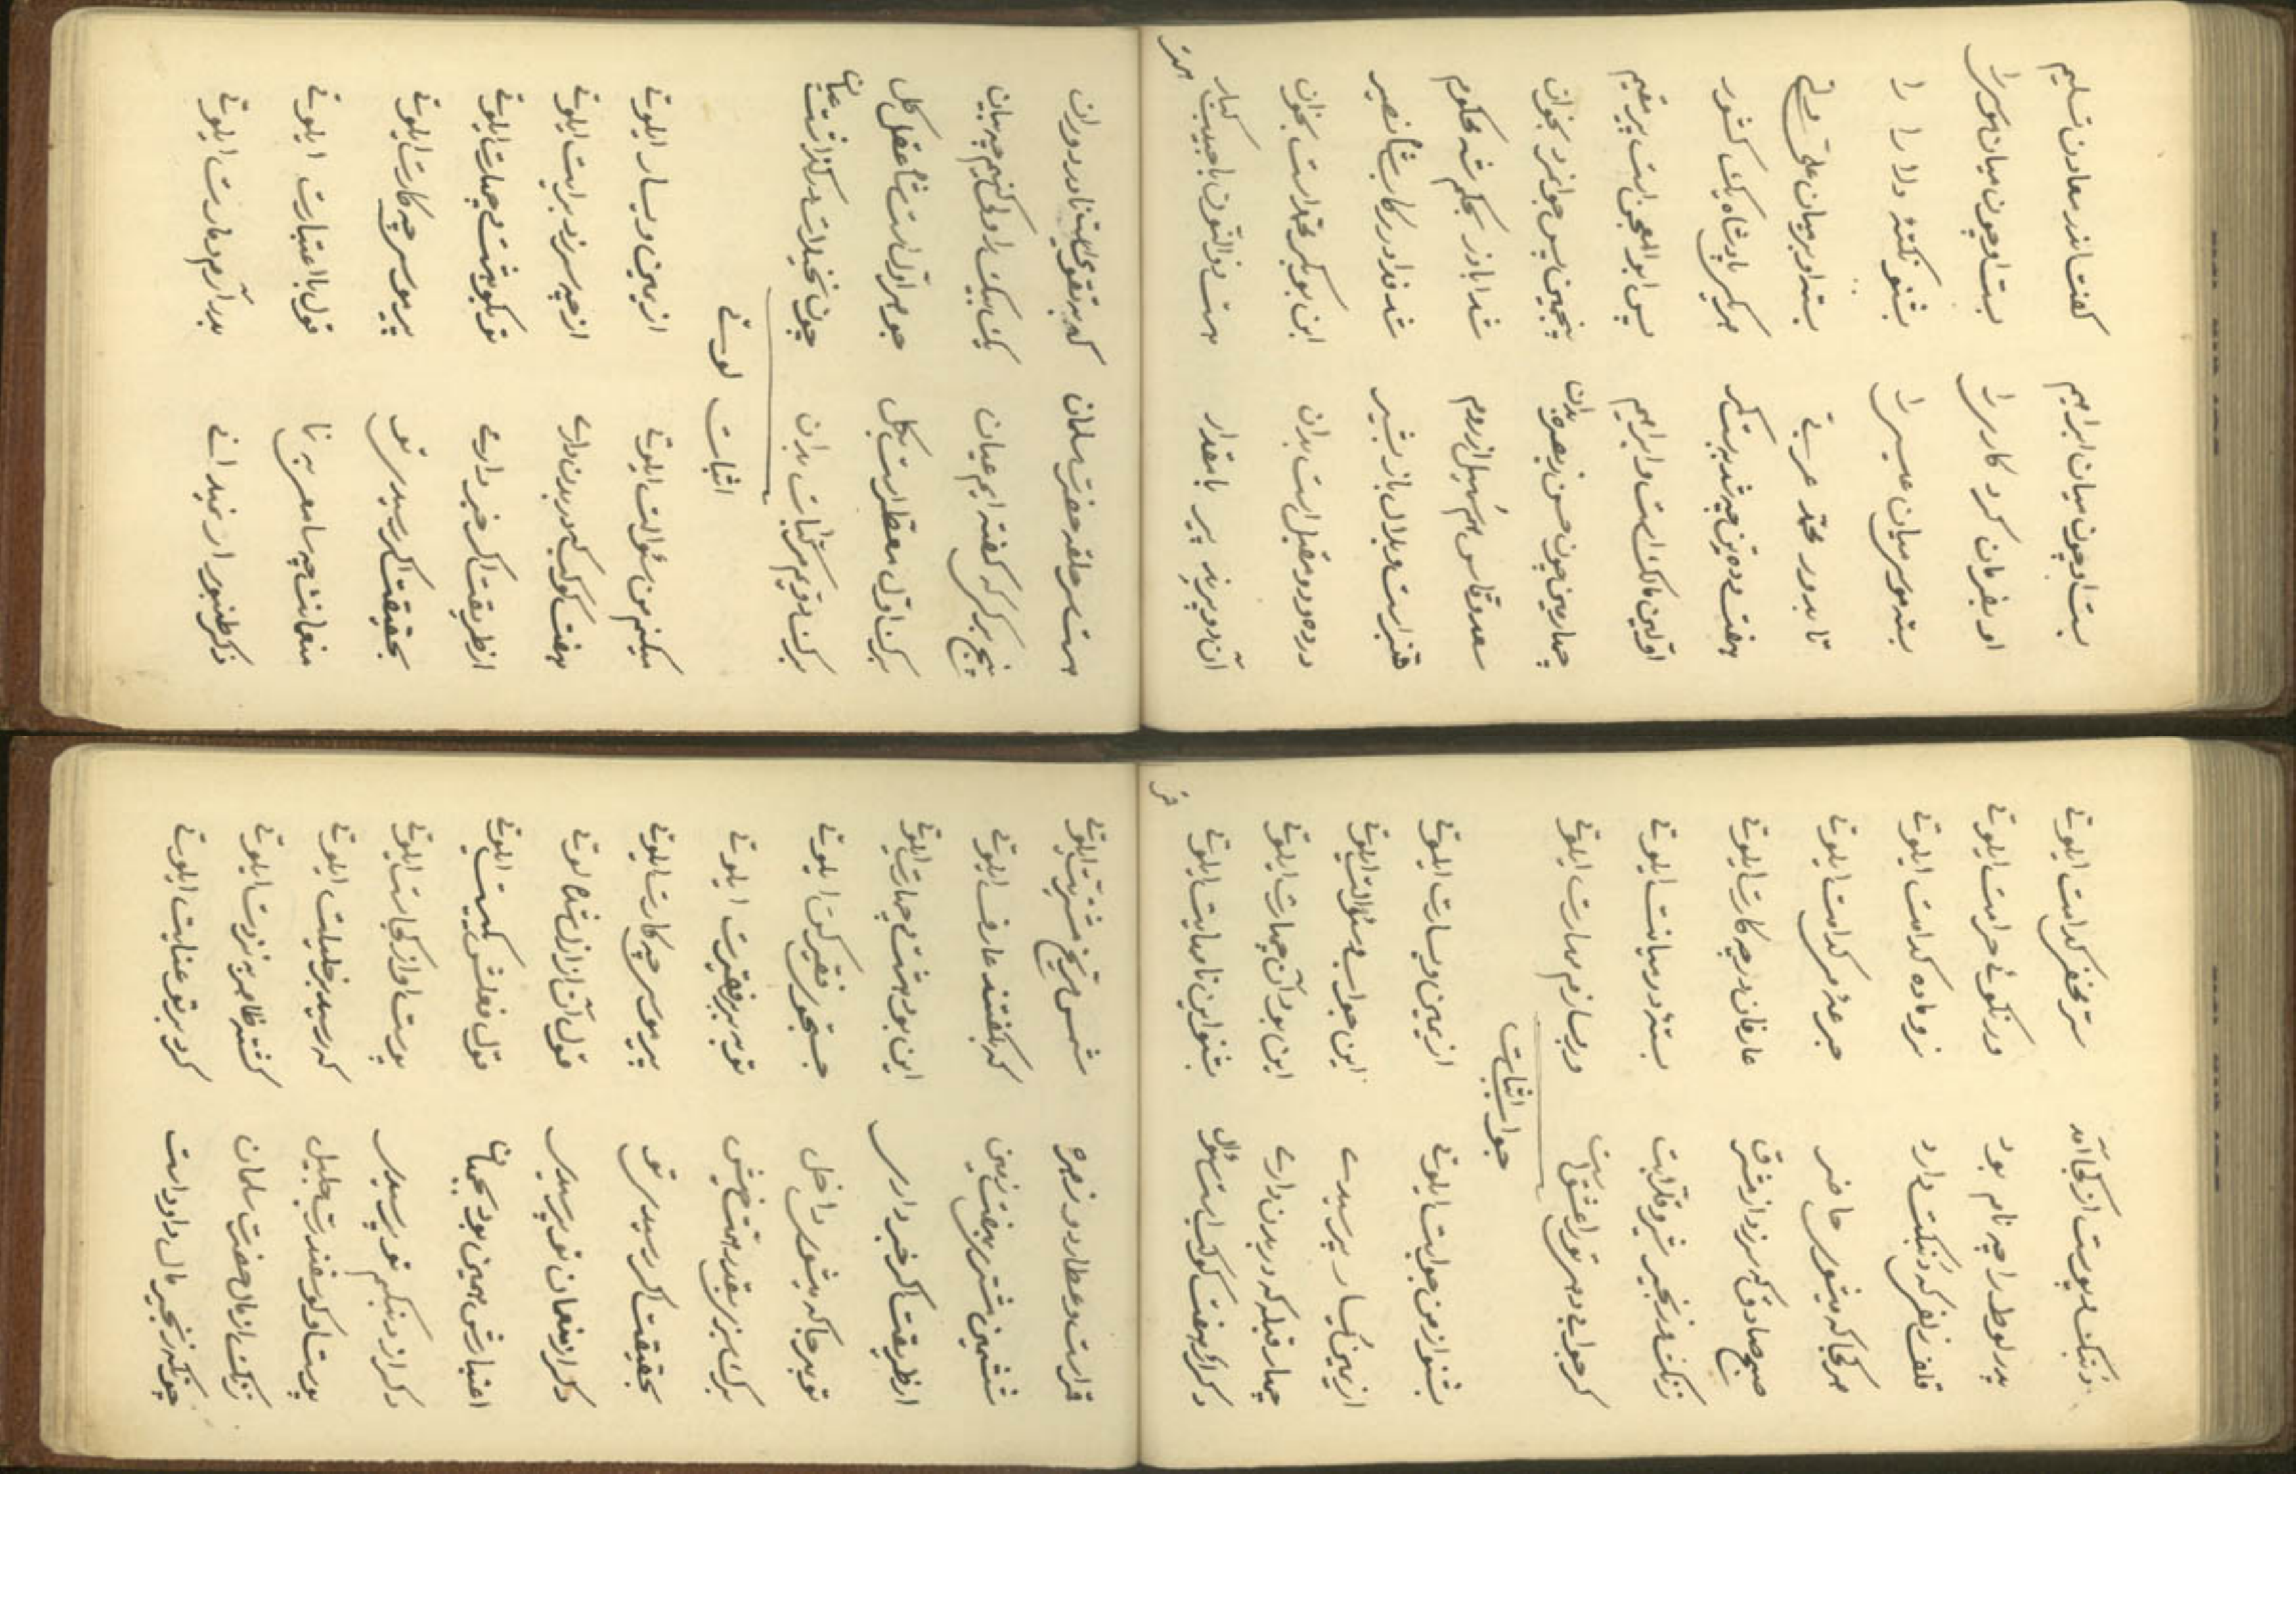 بست او چون میان ابراهیم کفت اندر معادن تسلیم
او بفرمان کرد کار موسی را بست او چون میان موسی را
بسته موسی میان عیسی را بشنو نکتهٔ دلا را را
تا بدور محمد عربی بست او بر میان علی ولی
هفت ده تن چه شد هر یکی پادشاه یک کشور
اولین مالک است و ابراهیم پس ابو المعجن است پیر عقیم
چهارمین چون حسن ببصره بدان پنجمین پس جوانمرد بخوان
سعد وقاس هم سهیل از روم شد اباذر بحکم شه محکوم
قنبر است و بلال باز بشیر شد فدا در رکاب شاه نصیر
در ده و دو مقبل است بدان ابن بوبکر محمد است بخوان
آن دو پیرند پیر با مقدار هست ذوالنون با حبیب کبار
هست سر حلقه حضرت سلمان که به تقوی است نادر دوران
پنج برکی که کفته ایم عیان یک بیک را ولی کنیم چه بیان
برک اول معطر است بکل جوهر اول است شاه عقل کل
برک دویم مرکبات بدان چون تخیلات عیان
اثبات لوتی
میکنم من سؤالت ایلوتی از یمین و یسار ایلوتی
هفت کوکب که در بدن داری از چه سر زد برایت ایلوتی
از طریقت اکر خبر داری تو بکو هشت و چهارت ایلوتی
بحقیقت اکر رسیدی تو پیر موسی چه کارت ایلوتی
قول با اعتبارت ایلوتی
ذکر طنبور ار نمیدانی بدر آرم دمارت ایلوتی
پوست از کجا آمد سر مخفی کدامت ایلوتی
پدر لوط را چه نام بود ور نکوئی حرامت ایلوتی
قلف زلفی که دارد نر و ماده کدامت ایلوتی
هر کجا که میشوی حاضر جرعهٔ می کدامت ایلوتی
صبح صادق که سر زد از مشرق عارفان در چه کارت ایلوتی
زنک و زنجیر بسته در میانت ایلوتی
کر جوابی دهی تو ور بسازم دمارت ایلوتی
جواب اثبات
بشنو از من جوابت ایلوتی از یمین و یسارت ایلوتی
از یمین یسار پرسیدی این جواب سؤالت ایلوتی
چهار قبله که در بدن داری این بود آن چهارت ایلوتی
ذکر آن هفت کوکب است بشنو این نامهایت ایلوتی
قمر است و عطارد و زهره شمس و مریخ ایلوتی
ششمین مشتری هفت زمین که بکفتند عارفت ایلوتی
از طریقت اکر خبر داری این بود هشت و چهارت ایلوتی
تو بهر جا که میشوی داخل جستجوی فقیر کن ایلوتی
برک سبزی بقدر همت خویش تو ببر بر فقیرت ایلوتی
بحقیقت اکر رسیدی تو پیر موسی چه کارت ایلوتی
ذکر از منعمان تو پرسیدی قول آن از لوتی
اعتبارش همین بود بجهان قول فعلش یکیست ایلوتی
ذکر از تو پرسیدی پوست او از کجاست ایلوتی
پوست کوسفند رب جلیل که رسید بر خلیلت ایلوتی
زنک از مال حضرت سلمان کشته ظاهر به نزدت ایلوتی
چونکه زنجیر مال داود است کرد بر تو عنایت ایلوتی